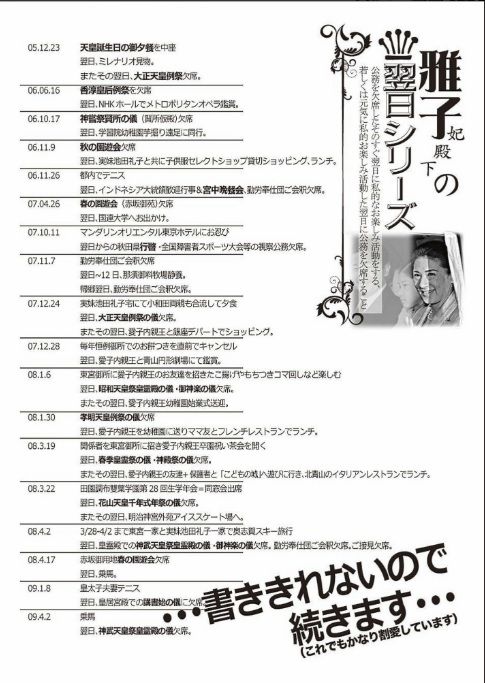 雅子妃殿下の
翌日シリーズ
公務を欠席したそのすぐ翌日に私的なお楽しみ活動をする、
若しくは元気に私的お楽しみ活動した翌日に公務を欠席すること
05.12.23 天皇誕生日の御夕餐を中座
翌日、ミレナリオ見物。
またその翌日、大正天皇例祭欠席。
06.06.16 香淳皇后例祭を欠席
翌日、NHKホールでメトロポリタンオペラ鑑賞。
06.10.17 神嘗祭賢所の儀(賢所仮殿)欠席
翌日、学習院幼稚園芋掘り遠足に同行。
06.11.9 秋の園遊会欠席
翌日、実妹池田礼子と共に子供服セレクトショップ貸切ショッピング、ランチ。
06.11.26 都内でテニス
翌日、インドネシア大統領歓迎行事&宮中晩餐会、勤労奉仕団ご会釈欠席。
07.04.26 春の園遊会(赤坂御苑)欠席
翌日、国連大学へお出かけ。
07.10.11 マンダリンオリエンタル東京ホテルにお忍び
翌日からの秋田県行啓・全国障害者スポーツ大会等の視察公務欠席。
07.11.7 勤労奉仕団ご会釈欠席
翌日~12日、那須御料牧場静養。
帰郷翌日、勤労奉仕団ご会釈欠席。
07.12.24 実妹池田礼子宅にて小和田両親も合流して夕食
翌日、大正天皇例祭の儀欠席。
またその翌日、愛子内親王と銀座デパートでショッピング。
07.12.28 毎年恒例御所でのお餅つきを直前でキャンセル
翌日、愛子内親王と青山円形劇場にて鑑賞。
08.1.6 東宮御所に愛子内親王のお友達を招きたこ揚げやもちつきコマ回しなど楽しむ
翌日、昭和天皇祭皇霊殿の儀・御神楽の儀欠席。
またその翌日、愛子内親王幼稚園始業式送迎。
08.1.30 孝明天皇例祭の儀欠席
翌日、愛子内親王を幼稚園に送りママ友とフレンチレストランでランチ。
08.3.19 関係者を東宮御所に招き愛子内親王卒園祝い茶会を開く
翌日、春季皇霊祭の儀・神殿祭の儀欠席。
またその翌日、愛子内親王の友達+保護者と「こどもの城」へ遊びに行き、北青山のイタリアンレストランでランチ。
08.3.22 田園調布雙葉学園第28回生学年会=同窓会出席
翌日、花山天皇千年式年祭の儀欠席。
またその翌日、明治神宮外苑アイススケート場へ。
08.4.2 3/28-4/2まで東宮一家と実妹池田礼子一家で奥志賀スキー旅行
翌日、皇霊殿での神武天皇祭皇霊殿の儀・御神楽の儀欠席。勤労奉仕団ご会釈欠席。ご接見欠席。
08.4.17 赤坂御用地春の園遊会欠席
翌日、乗馬。
09.1.8 皇太子夫妻テニス
翌日、皇居宮殿での講書始の儀に欠席
09.4.2 乗馬
翌日、神武天皇祭皇霊殿の儀欠席。
…書ききれないので
続きます…
(これでもかなり割愛しています)